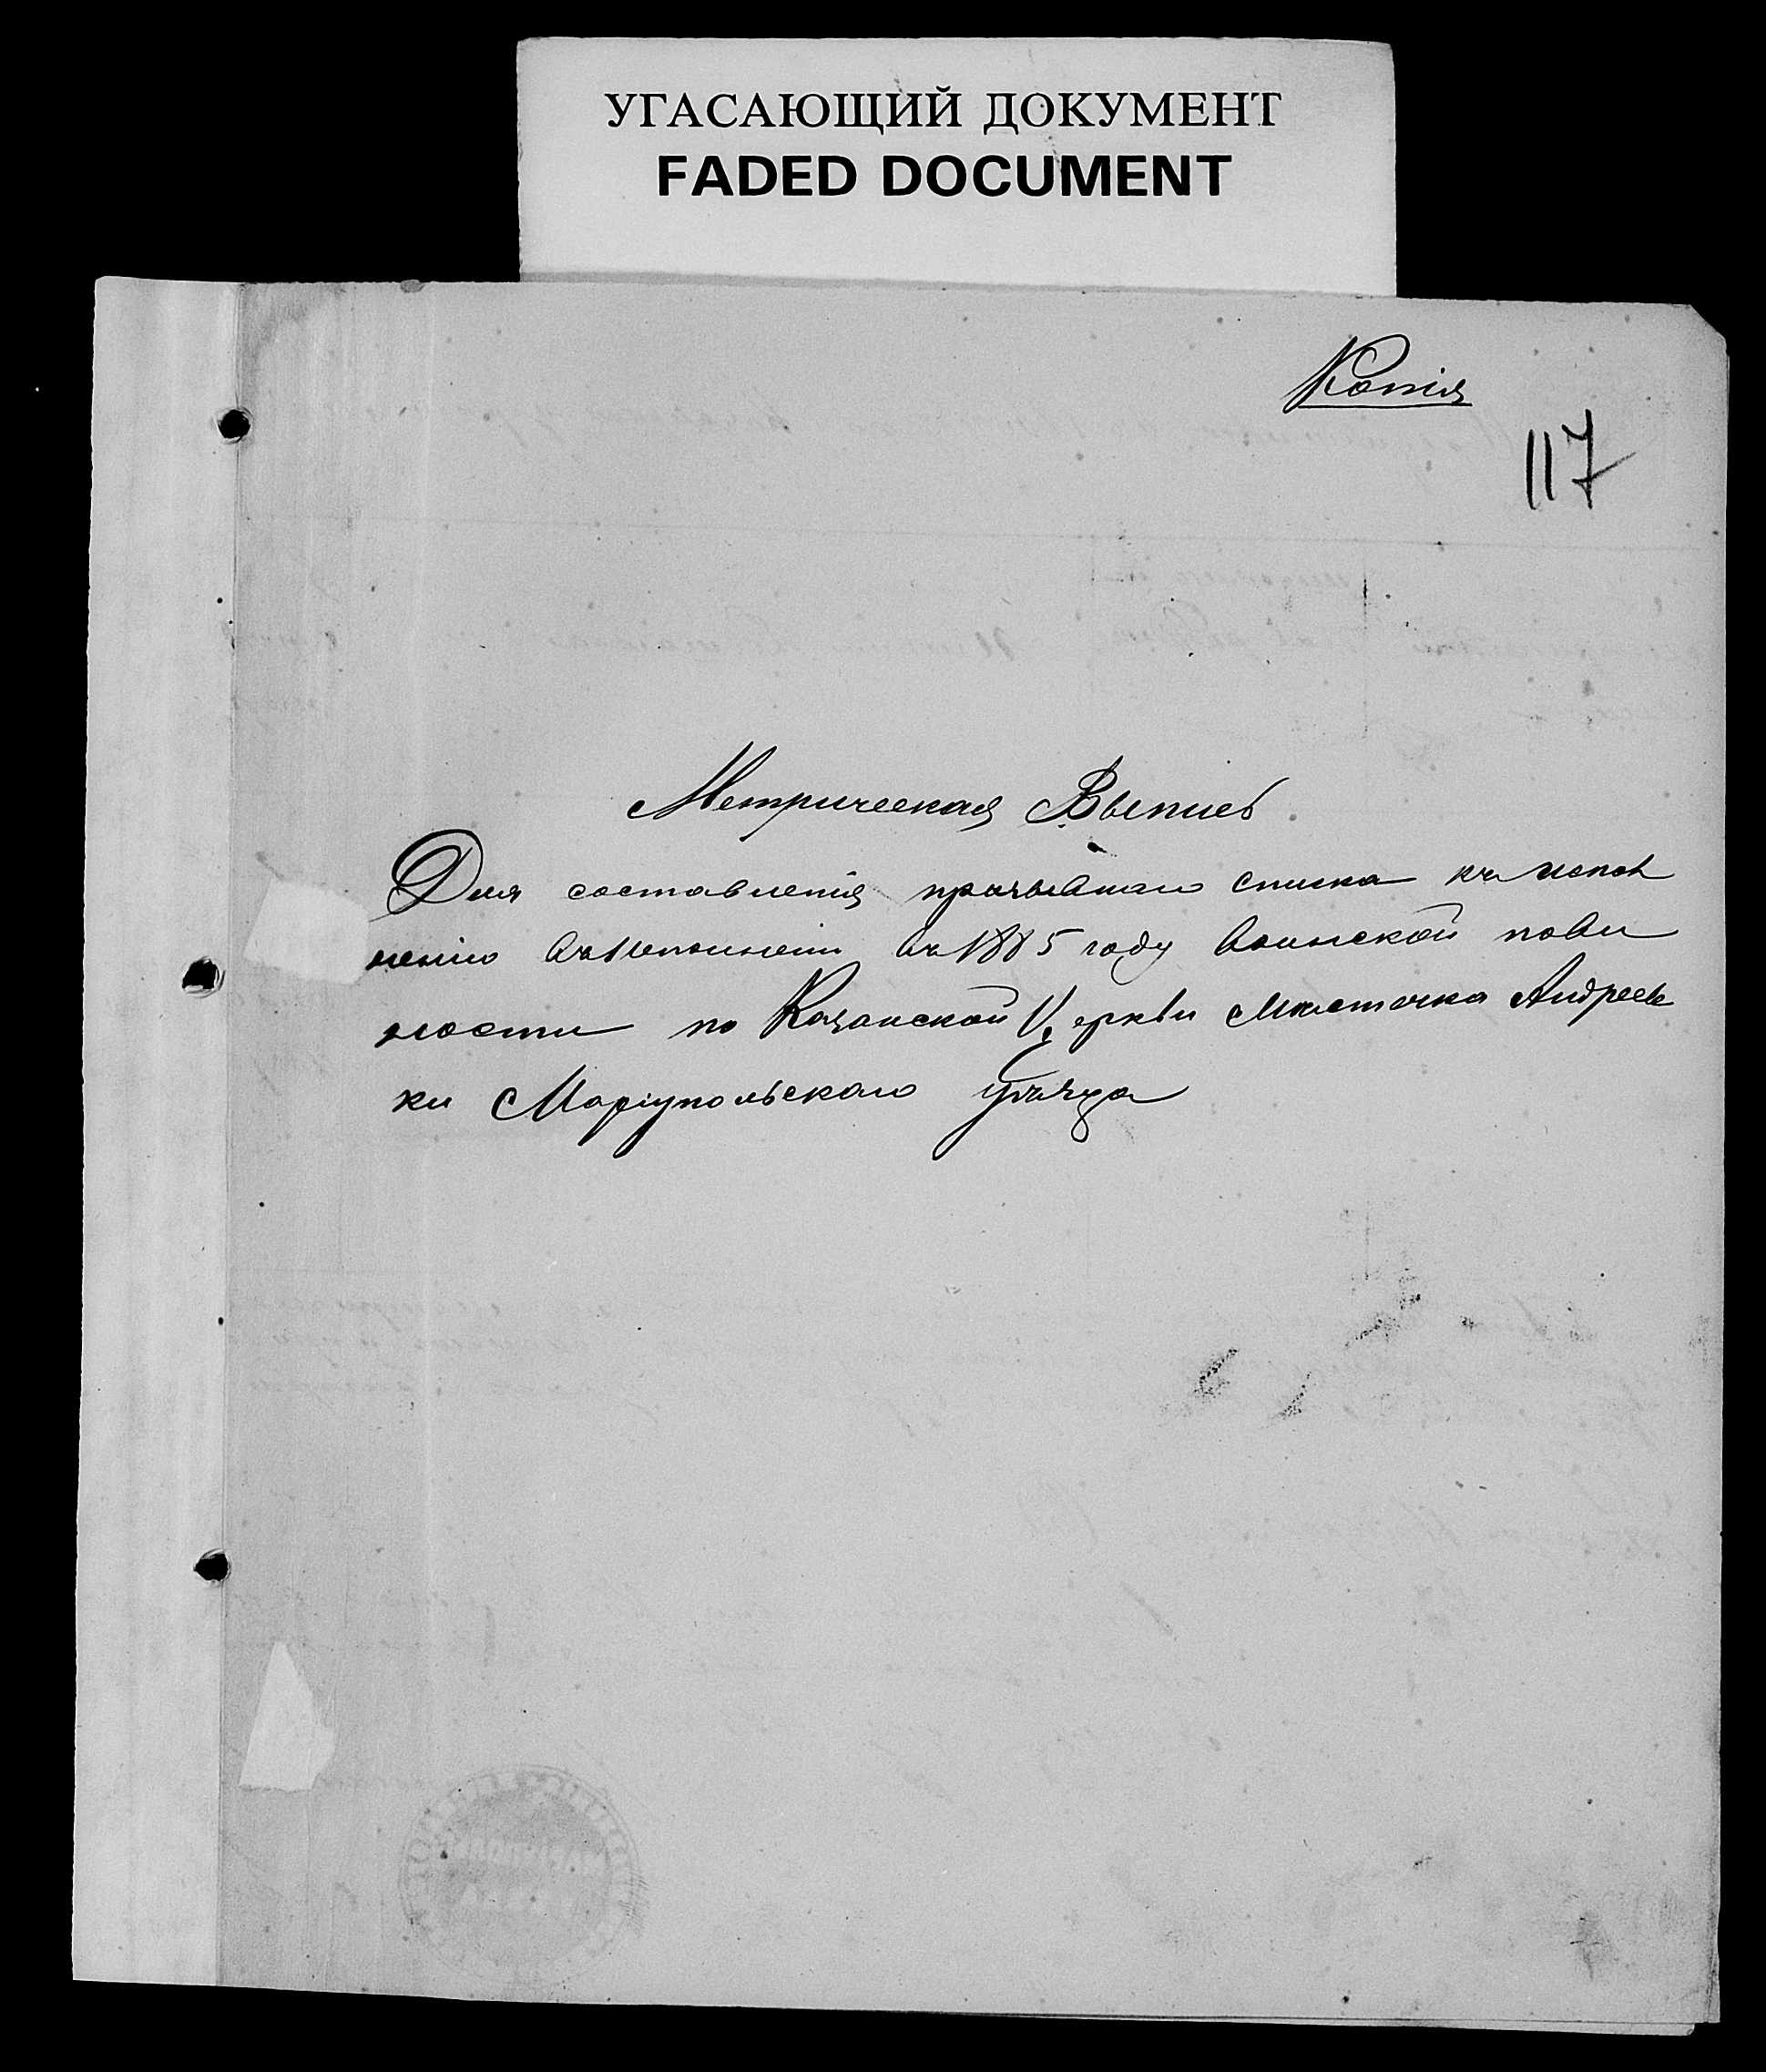 УГАСАЮЩИЙ ДОКУМЕНТ
FADED DOCUMENT
Копія
117
Метрическая Выпись.
Для составленія призывнаго списка къ испол
ненію въ 1885 году воинской пови
ности по Казанской Церкви Мѣстечка Андреев
ки Маріупольскаго уѣзда